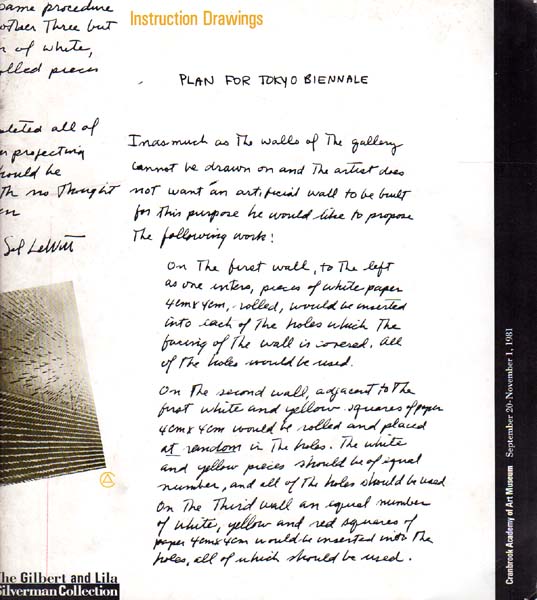 same procedure
other three but
of white,
rolled pieces
all of
projecting
would be
no thought
Sol LeWitt
The Gilbert and Lila
Silverman Collection
Instruction Drawings
PLAN FOR TOKYO BIENNALE
Inasmuch as the walls of the gallery
cannot be drawn on and the artist does
not want an artificial wall to be built
for this purpose he would like to propose
the following work:
On the first wall, to the left
as one inters, pieces of white paper
4cm x 4cm, rolled, would be inserted
into each of the holes which the
facing of the wall is covered. All
of the holes would be used.
On the second wall, adjacent to the
first white and yellow squares of paper
4cm x 4cm would be rolled and placed
at random in the holes. The white
and yellow pieces should be of equal
number, and all of the holes should be used
On the third wall an equal number
of white, yellow and red squares of
paper 4cm x 4cm would be inserted into the
holes, all of which should be used.
Cranbrook Academy of Art Museum September 20-November 1, 1981